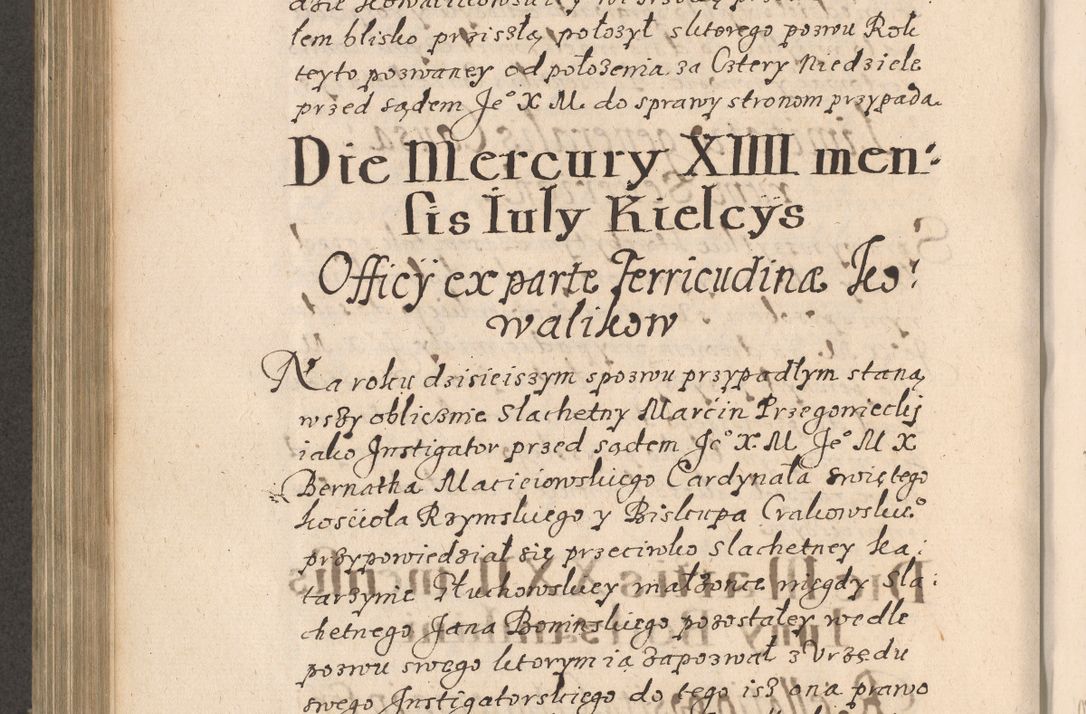 lem blisko prziszłą położył sktorego pozwu Rok
teyto pozwaney od położenia za Cztery Niedziele
przed sądem Je° X M. do sprawy stronom przypada.
Die Mercury XIIII men:
sis Iuly Kielcÿs
Officÿ ex parte Terricudinæ Ko:
walikow
Na roku dzisieiszym spozwu przypadłym staną
wszy oblicznie Slachetny Marcin Przegoniectij
iako Instigator przed sądem Je° X. M Je° M X
Bernatha Macieiowskiego Cardynała swiętego
kościoła Rzymskiego y Biskupa Crakowskie°
przypowiedział się przeciwko Slachetney Ka:
tarzynie Tłuchowskiey małżonce niegdy Sla:
chetnego Jana Boninskiego pozostałey wedle
pozwu swego ktorym ią zapozwał z Vrzędu
swego Instigatorskiego do tego isz ona prawo